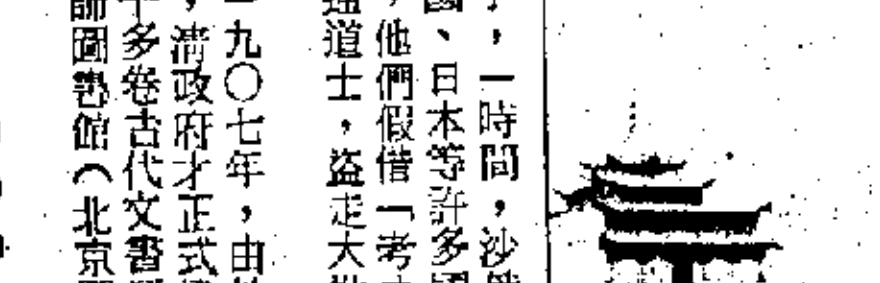 ，一時間，沙
國、日本等許多
，他們假借「考
道士，盜走大
一九〇七年，由
，清政府才正式
千多卷古代文書
師圖書館（北京